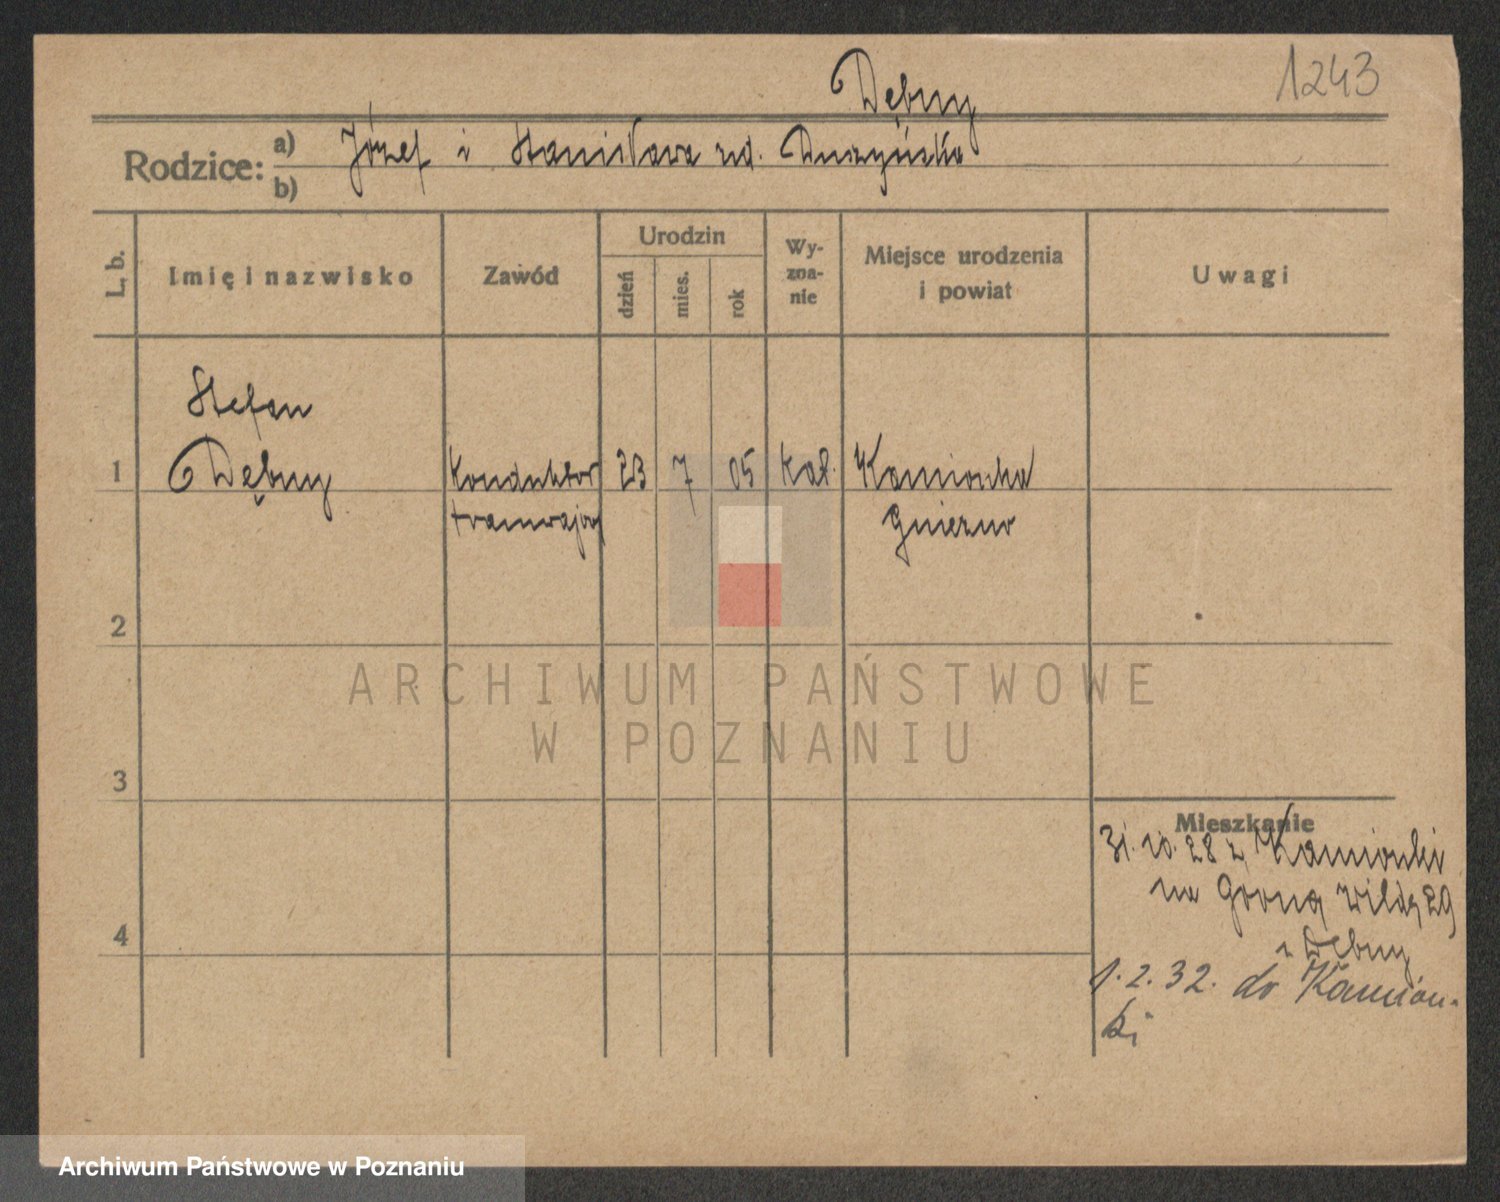 1243
Dębny
Rodzice: a) Józef i Stanisława rd.
b)
L. b.
Imię i nazwisko
Zawód
Urodzin
dzień
mies.
rok
Wy-
zna-
nie
Miejsce urodzenia
i powiat
Uwagi
Stefan
1 Dębny Konduktor 23 7 05 Kat. Kamionka
tramwajowy Gniezno
2
ARCHIWUM PAŃSTWOWE
W POZNANIU
3
Mieszkanie
31.10.28 z Kamionki
na Górną Wildę 29
Dębny
4
1.2.32. do Kamion-
ki
Archiwum Państwowe w Poznaniu